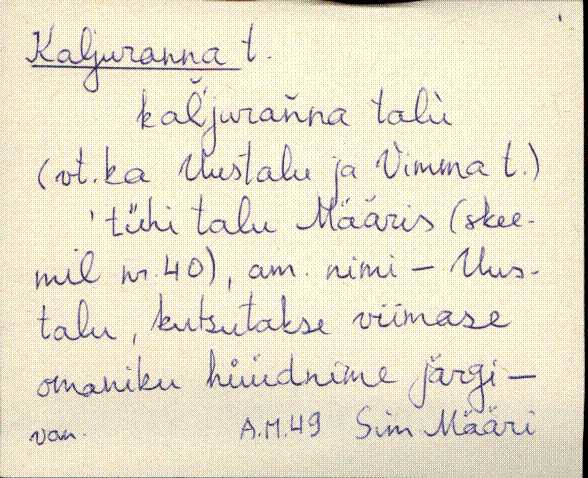 Kaljuranna t.
kaľjurańna talù
(vt. ka Uustalu ja Vimma t.)
'tühi talu Määris (skee-
mil nr. 40), am. nimi – Uus-
talu, kutsutakse viimase
omaniku hüüdnime järgi –
van. A.M. 49 Sim Määri